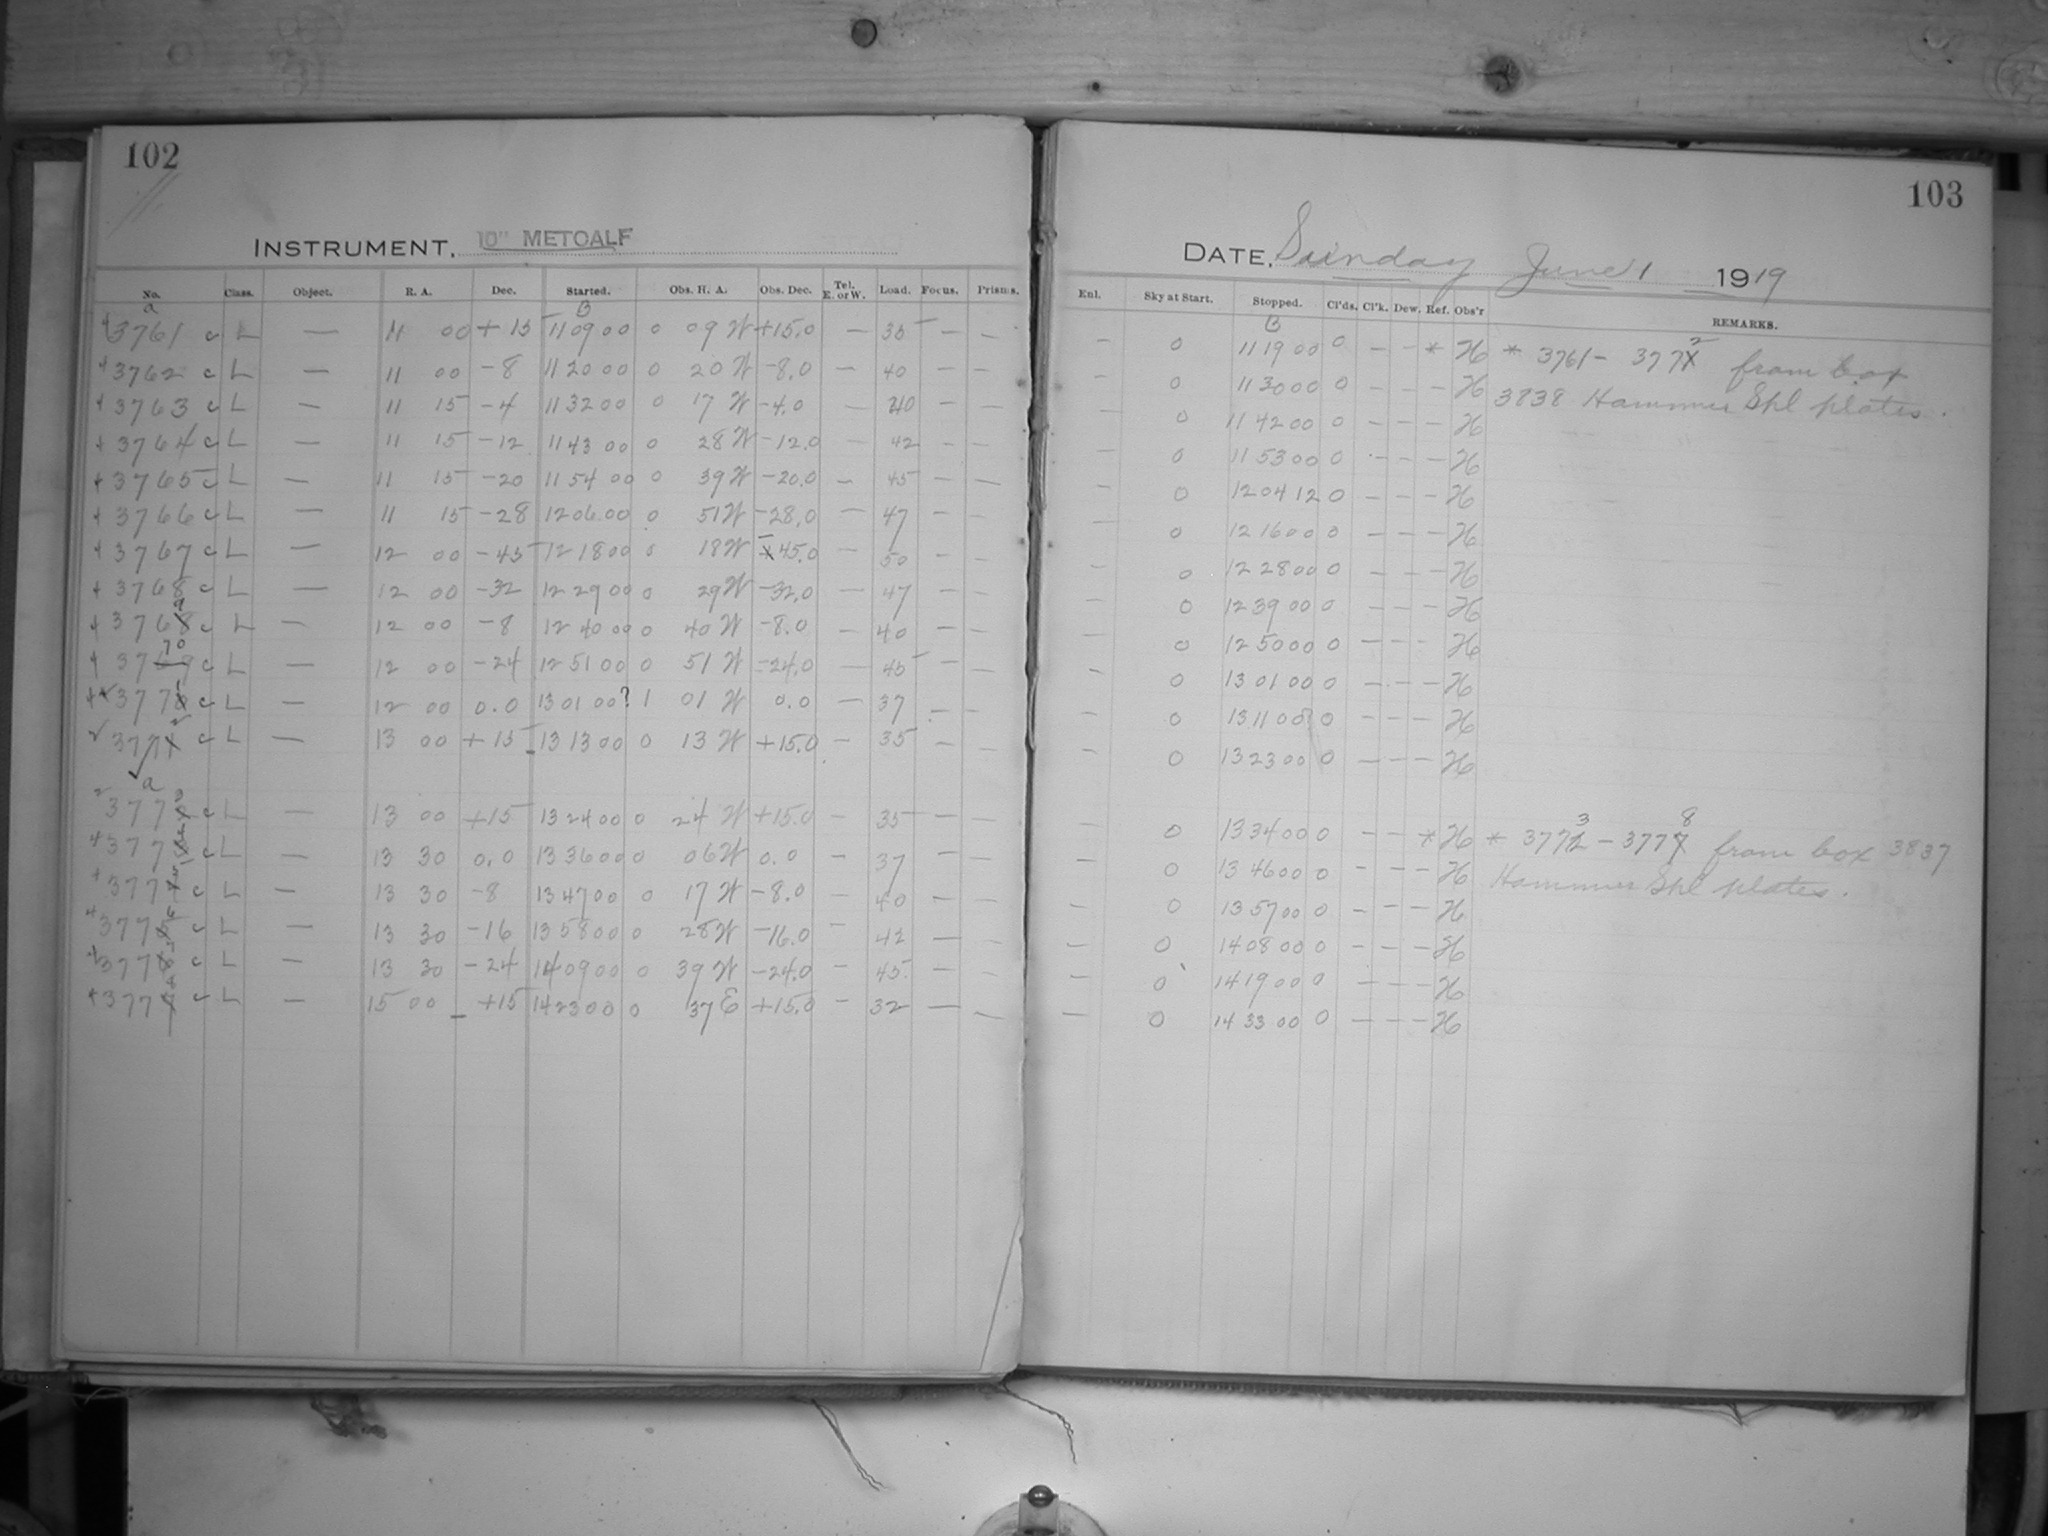 102
INSTRUMENT. 10" METCALF
No. Class. Object. R. A. Dec. Started. Obs. H. A. Obs. Dec. Tel. E. or W. Load. Focus. Prisms.
a B
3761 c L — 11 00 + 15 11 09 00 0 09 W +15.0 — 35 — —
3762 c L — 11 00 -8 11 20 00 0 20 W -8.0 — 40 — —
3763 c L — 11 15 -4 11 32 00 0 17 W -4.0 — 40 — —
3764 c L — 11 15 -12 11 43 00 0 28 W -12.0 — 42 — —
3765 c L — 11 15 -20 11 54 00 0 39 W -20.0 — 45 — —
3766 c L — 11 15 -28 12 06 00 0 51 W -28.0 — 47 — —
3767 c L — 12 00 -45 12 18 00 0 18 W -45.0 — 50 — —
3768 c L — 12 00 -32 12 29 00 0 29 W -32.0 — 47 — —
3769 c L — 12 00 -8 12 40 00 0 40 W -8.0 — 40 — —
3770 c L — 12 00 -24 12 51 00 0 51 W -24.0 — 45 — —
377 c L — 12 00 0.0 13 01 00? 1 01 W 0.0 — 37 — —
3772 c L — 13 00 + 15 13 13 00 0 13 W +15.0 — 35 — —
a
377 c L — 13 00 +15 13 24 00 0 24 W +15.0 — 35 — —
377 c L — 13 30 0.0 13 36 00 0 06 W 0.0 — 37 — —
377 c L — 13 30 -8 13 47 00 0 17 W -8.0 — 40 — —
377 c L — 13 30 -16 13 58 00 0 28 W -16.0 — 42 — —
377 c L — 13 30 -24 14 09 00 0 39 W -24.0 — 45 — —
377 c L — 15 00 +15 14 23 00 0 37 E +15.0 — 32 — —
103
DATE. Sunday June 1 1919
Enl. Sky at Start. Stopped. Cl'ds. Cl'k. Dew. Ref. Obs'r REMARKS.
B
— 0 11 19 00 0 — — * H * 3761 - 3772 from box
— 0 11 30 00 0 — — — H 3838 Hammer Spl plates.
— 0 11 42 00 0 — — — H
— 0 11 53 00 0 — — — H
— 0 12 04 12 0 — — — H
— 0 12 16 00 0 — — — H
— 0 12 28 00 0 — — — H
— 0 12 39 00 0 — — — H
— 0 12 50 00 0 — — — H
— 0 13 01 00 0 — — — H
— 0 13 11 00? 0 — — — H
— 0 13 23 00 0 — — — H
— 0 13 34 00 0 — — * H * 3773 - 3778 from box 3837
0 13 46 00 0 — — — H Hammer Spl plates.
— 0 13 57 00 0 — — — H
— 0 14 08 00 0 — — — H
— 0 14 19 00 0 — — — H
— 0 14 33 00 0 — — — H